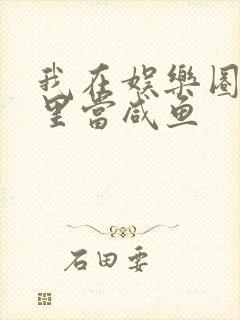 我在娱樂圈
里當咸鱼
石田要